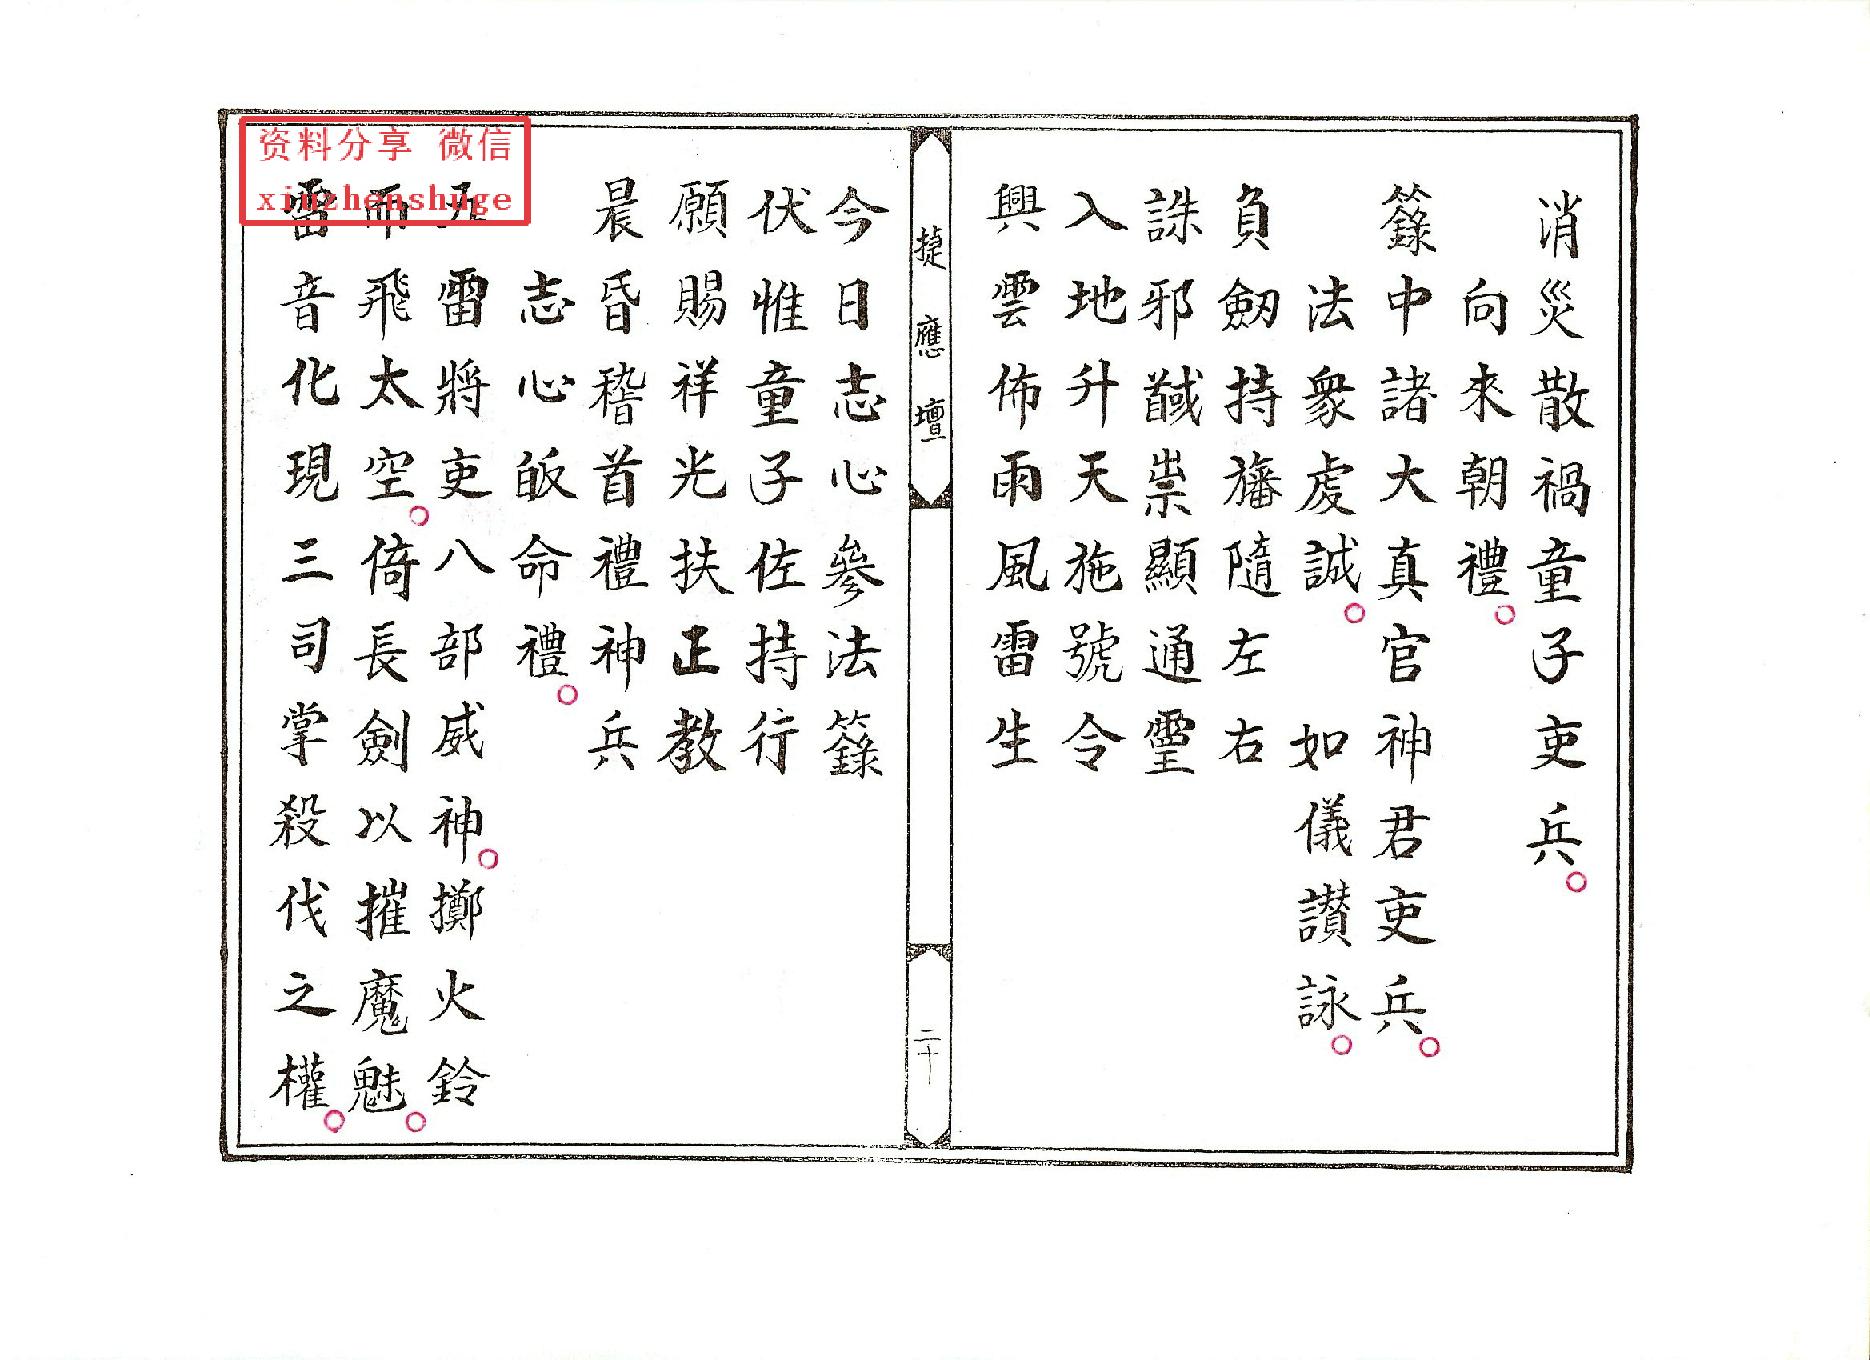 资料分享 微信
xiuzhenshuge
消災散禍童子吏兵。
向來朝禮。
籙中諸大真官神君吏兵。
法衆虔誠。 如儀讃詠。
負劒持旛隨左右
誅邪馘祟顯通靈
入地升天施號令
興雲佈雨風雷生
捷應壇
二十
今日志心參法籙
伏惟童子佐持行
願賜祥光扶正教
晨昏稽首禮神兵
志心皈命禮。
雷將吏八部威神。擲火鈴
而飛太空。倚長劍以摧魔魅。
雷音化現三司掌殺伐之權。